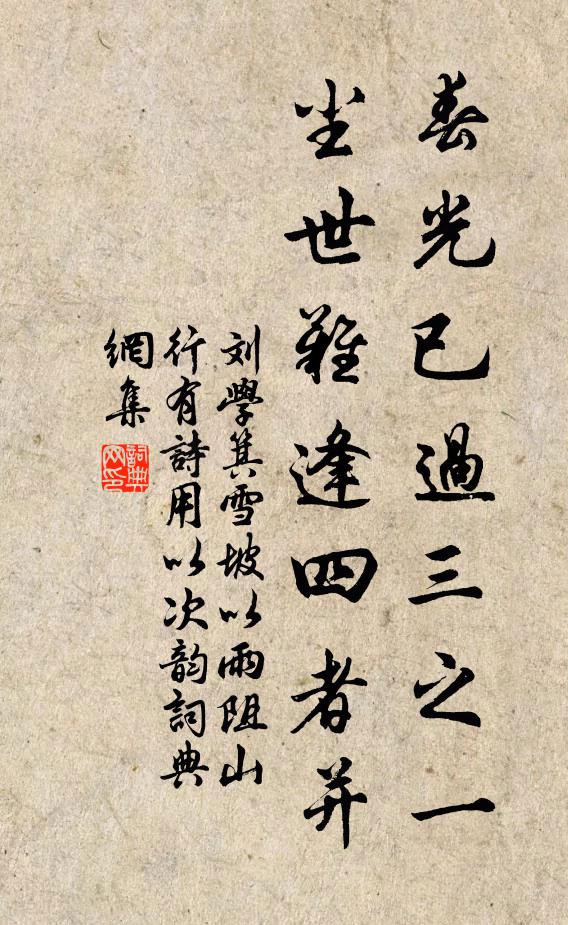 春光已過三之一
尘世難逢四者并
刘學箕雪坡以雨阻山
行有詩用以次韵詞典
網集
詞典
网印